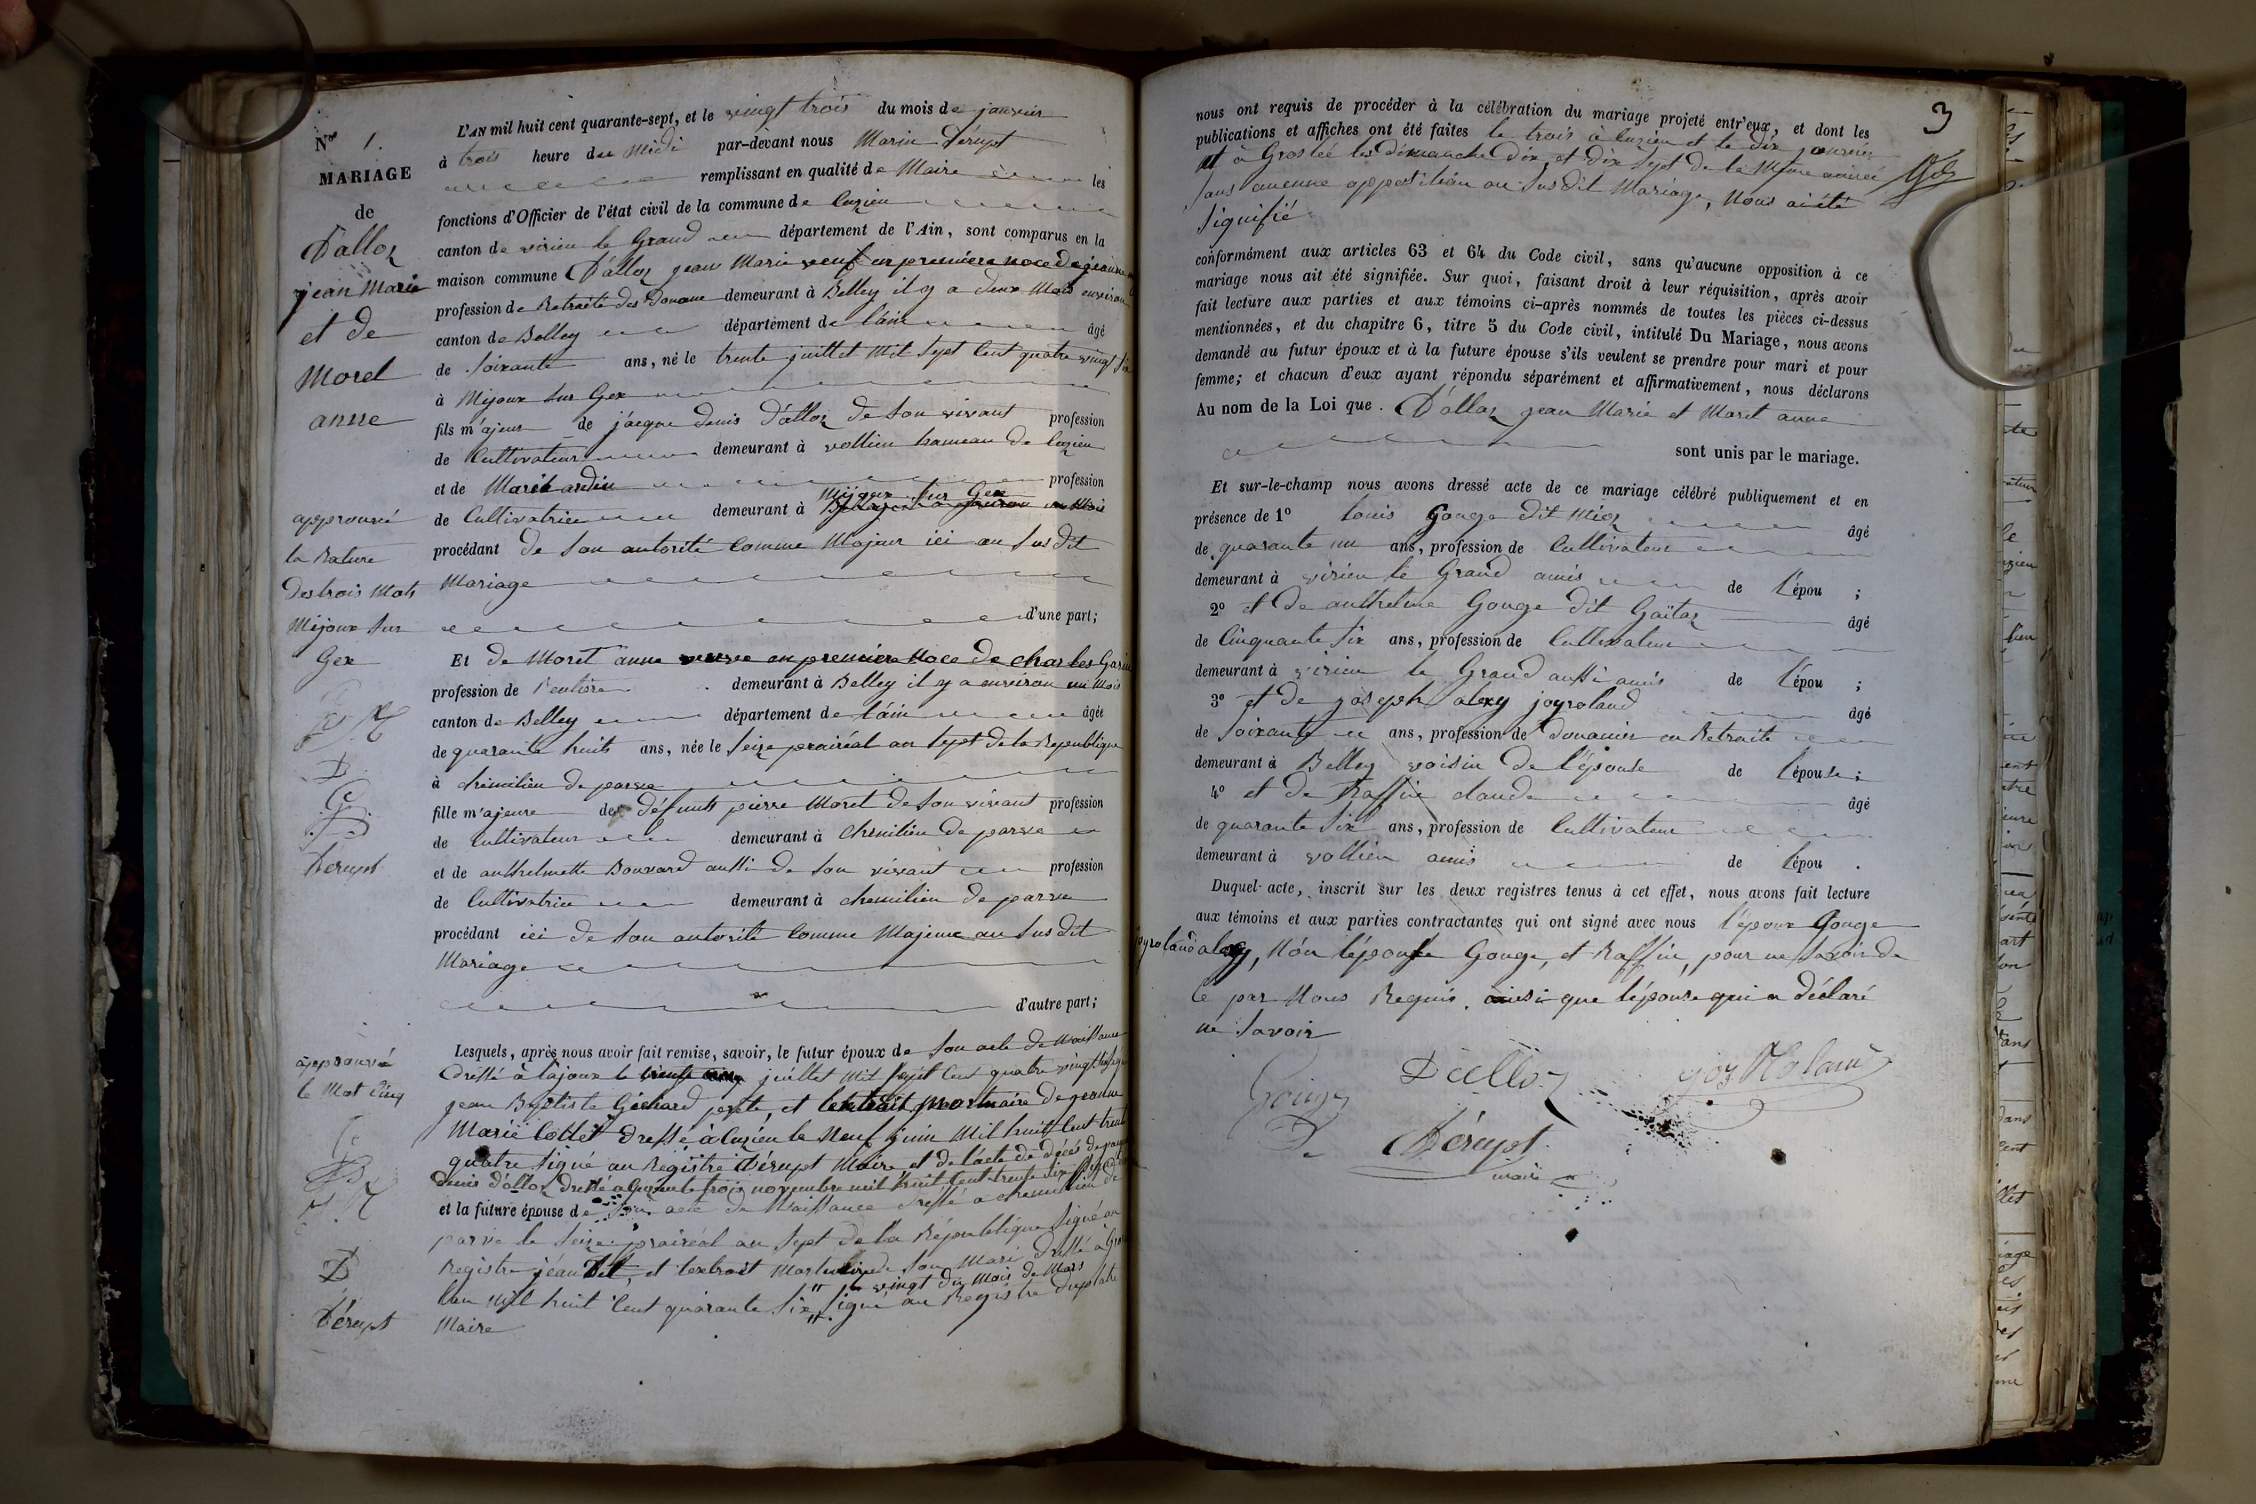 Nos 1.
MARIAGE
de
D'alloz
jean Marie
et de
Morel
anne
approuvé
la Rature
des trois Mots
Mijoux sur
Gex
Dérupt
approuvé
le Mot cinq
D
Dérupt
L'AN mil huit cent quarante-sept, et le vingt trois du mois de janvier
à trois heure du Midi par-devant nous Marin Dérupt
remplissant en qualité de Maire les
fonctions d'Officier de l'état civil de la commune de Cuzieu
canton de virieu le Grand département de l'Ain, sont comparus en la
maison commune D'alloz jean Marie veuf en première noce de jeanne
profession de Retraite des Douane demeurant à Belley il y a deux Mois environ
canton de Belley département de l'ain âgé
de soixante ans, né le trente juillet Mil sept Cent quatre vingt six
à Mijoux sur Gex
fils m'ajeur de jàcque denis d'alloz de son vivant profession
de Cultivateur demeurant à vollien hameau de Cuzieu
et de Marie andin profession
de Cultivatrice demeurant à Mijoux sur Gex
procédant de son autorité Comme Majeur ici au susdit
Mariage
d'une part;
Et de Moret anne veuve en première Noce de charles Garin
profession de Rentière demeurant à Belley il y a environ un Mois
canton de Belley département de l'ain âgée
de quarante huit ans, née le seize prairéal an sept de la Republique
à chemilieu de parve
fille m'ajeure des défunts pierre Moret de son vivant profession
de Cultivateur demeurant à chemilieu de parve
et de anthelmette Bouvard aussi de son vivant profession
de Cultivatrice demeurant à chemilieu de parve
procédant ici de son autorité Comme Majeure au susdit
Mariage
d'autre part;
Lesquels, après nous avoir fait remise, savoir, le futur époux de son acte de Naissance
dressé à lajoux le juillet Mil sept Cent quatre vingt
jean Baptiste Gichard et lextrait Mortuaire de jeanne
Marie Collet dressé à Cuzieu le Neuf juin Mil huit Cent trente
quatre signé au Registre Dérupt Maire et de l'acte de décés de
denis d'alloz dressé à trois novembre mil huit Cent trente six
et la future épouse de son acte de Naissance dressé a chemilieu de
parve le seize prairéal an sept de la République signé au
Registre jéan et lextrait Mortuaire de son Mari dressé à
le vingt du Mois de Mars
l'an Mil huit Cent quarante six signé au Registre
Maire
3
nous ont requis de procéder à la célébration du mariage projeté entr'eux, et dont les
publications et affiches ont été faites le trois à Cuzieu et le dix janvier
et à Groslée les dimanche dix et dix sept de la Même année
sans aucune oppostition au susdit Mariage, Nous ai été
signifié
conformément aux articles 63 et 64 du Code civil, sans qu'aucune opposition à ce
mariage nous ait été signifiée. Sur quoi, faisant droit à leur réquisition, après avoir
fait lecture aux parties et aux témoins ci-après nommés de toutes les pièces ci-dessus
mentionnées, et du chapitre 6, titre 5 du Code civil, intitulé Du Mariage, nous avons
demandé au futur époux et à la future épouse s'ils veulent se prendre pour mari et pour
femme; et chacun d'eux ayant répondu séparément et affirmativement, nous déclarons
Au nom de la Loi que D'alloz jean Marie et Moret anne
sont unis par le mariage.
Et sur-le-champ nous avons dressé acte de ce mariage célébré publiquement et en
présence de 1° Louis Gouge dit Mioz âgé
de quarante un ans, profession de Cultivateur
demeurant à virieu le Grand amis de l'épou ;
2° et de anthelme Gouge dit Gaïtaz âgé
de Cinquante six ans, profession de Cultivateur
demeurant à virieu le Grand aussi amis de l'épou ;
3° et de joseph alexy joyroland âgé
de soixante ans, profession de douanier en Retraite
demeurant à Belley voisin de l'épouse de l'épouse ;
4° et de Raffin claude âgé
de quarante six ans, profession de Cultivateur
demeurant à vollien amis de l'épou .
Duquel acte, inscrit sur les deux registres tenus à cet effet, nous avons fait lecture
aux témoins et aux parties contractantes qui ont signé avec nous l'époux Gouge
joyroland alexy, Nón lépouse Gouge, et Raffin, pour ne savoir de
Ce par Nous Requis. ainsi que lépouse qui a déclaré
ne savoir
Gouge
Dalloz
joy Roland
Dérupt
maire